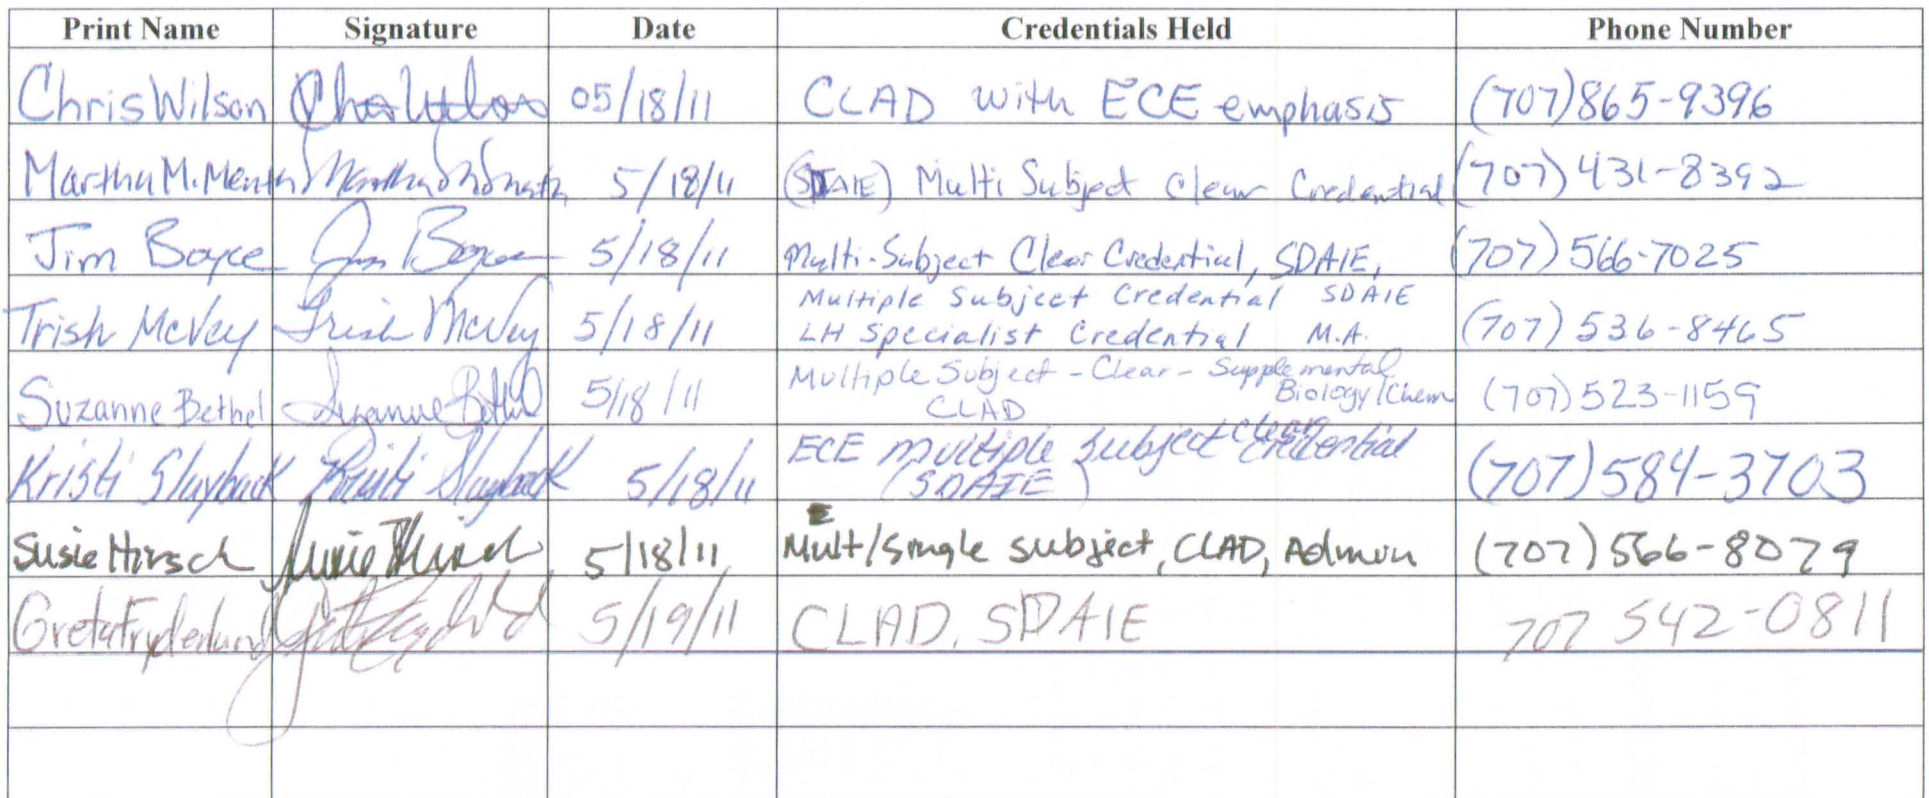 Print Name Signature Date Credentials Held Phone Number
Chris Wilson 05/18/11 CLAD with ECE emphasis (707)865-9396
Martha M. Menth 5/18/11 (SDAIE) Multi Subject Clear Credential (707) 431-8392
Jim Boyce Jim Boyce 5/18/11 Multi-Subject Clear Credential, SDAIE, (707) 566-7025
Trish McVey Trish McVey 5/18/11 Multiple Subject Credential SDAIE
LH Specialist Credential M.A. (707) 536-8465
Suzanne Bethel Suzanne Bethel 5/18/11 Multiple Subject - Clear - Supplemental
Biology/Chem
CLAD (707) 523-1159
Kristi Slayback Kristi Slayback 5/18/11 ECE multiple subject clear credential
(SDAIE) (707) 584-3703
Susie Hirsch Susie Hirsch 5/18/11 Mult/Single subject, CLAD, Admin (707) 566-8079
Greta Fryderlund 5/19/11 CLAD, SDAIE 707 542-0811